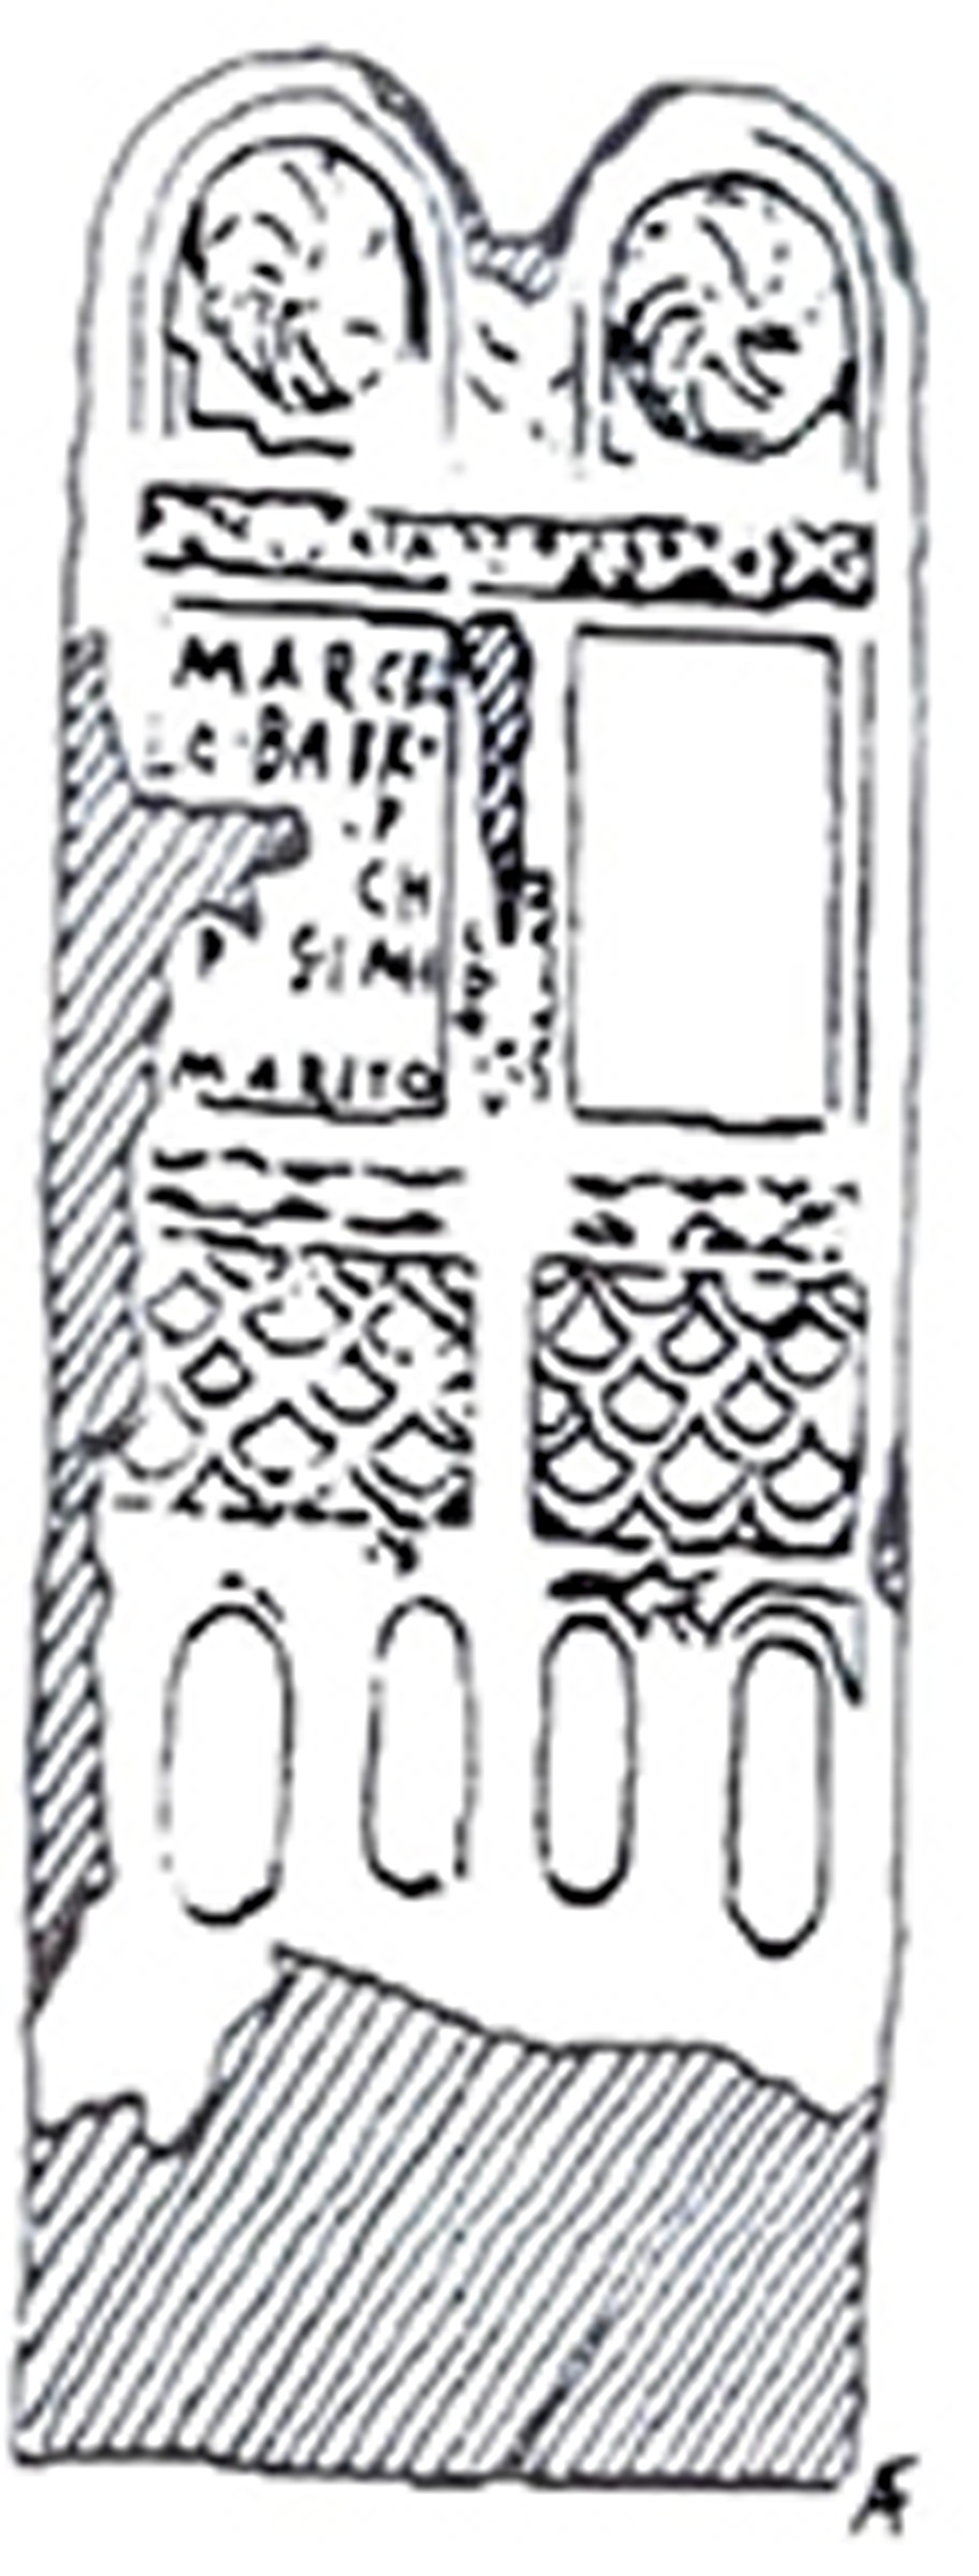 MARCEL
C·BABK·
P
CH
P SIMI
MARITO